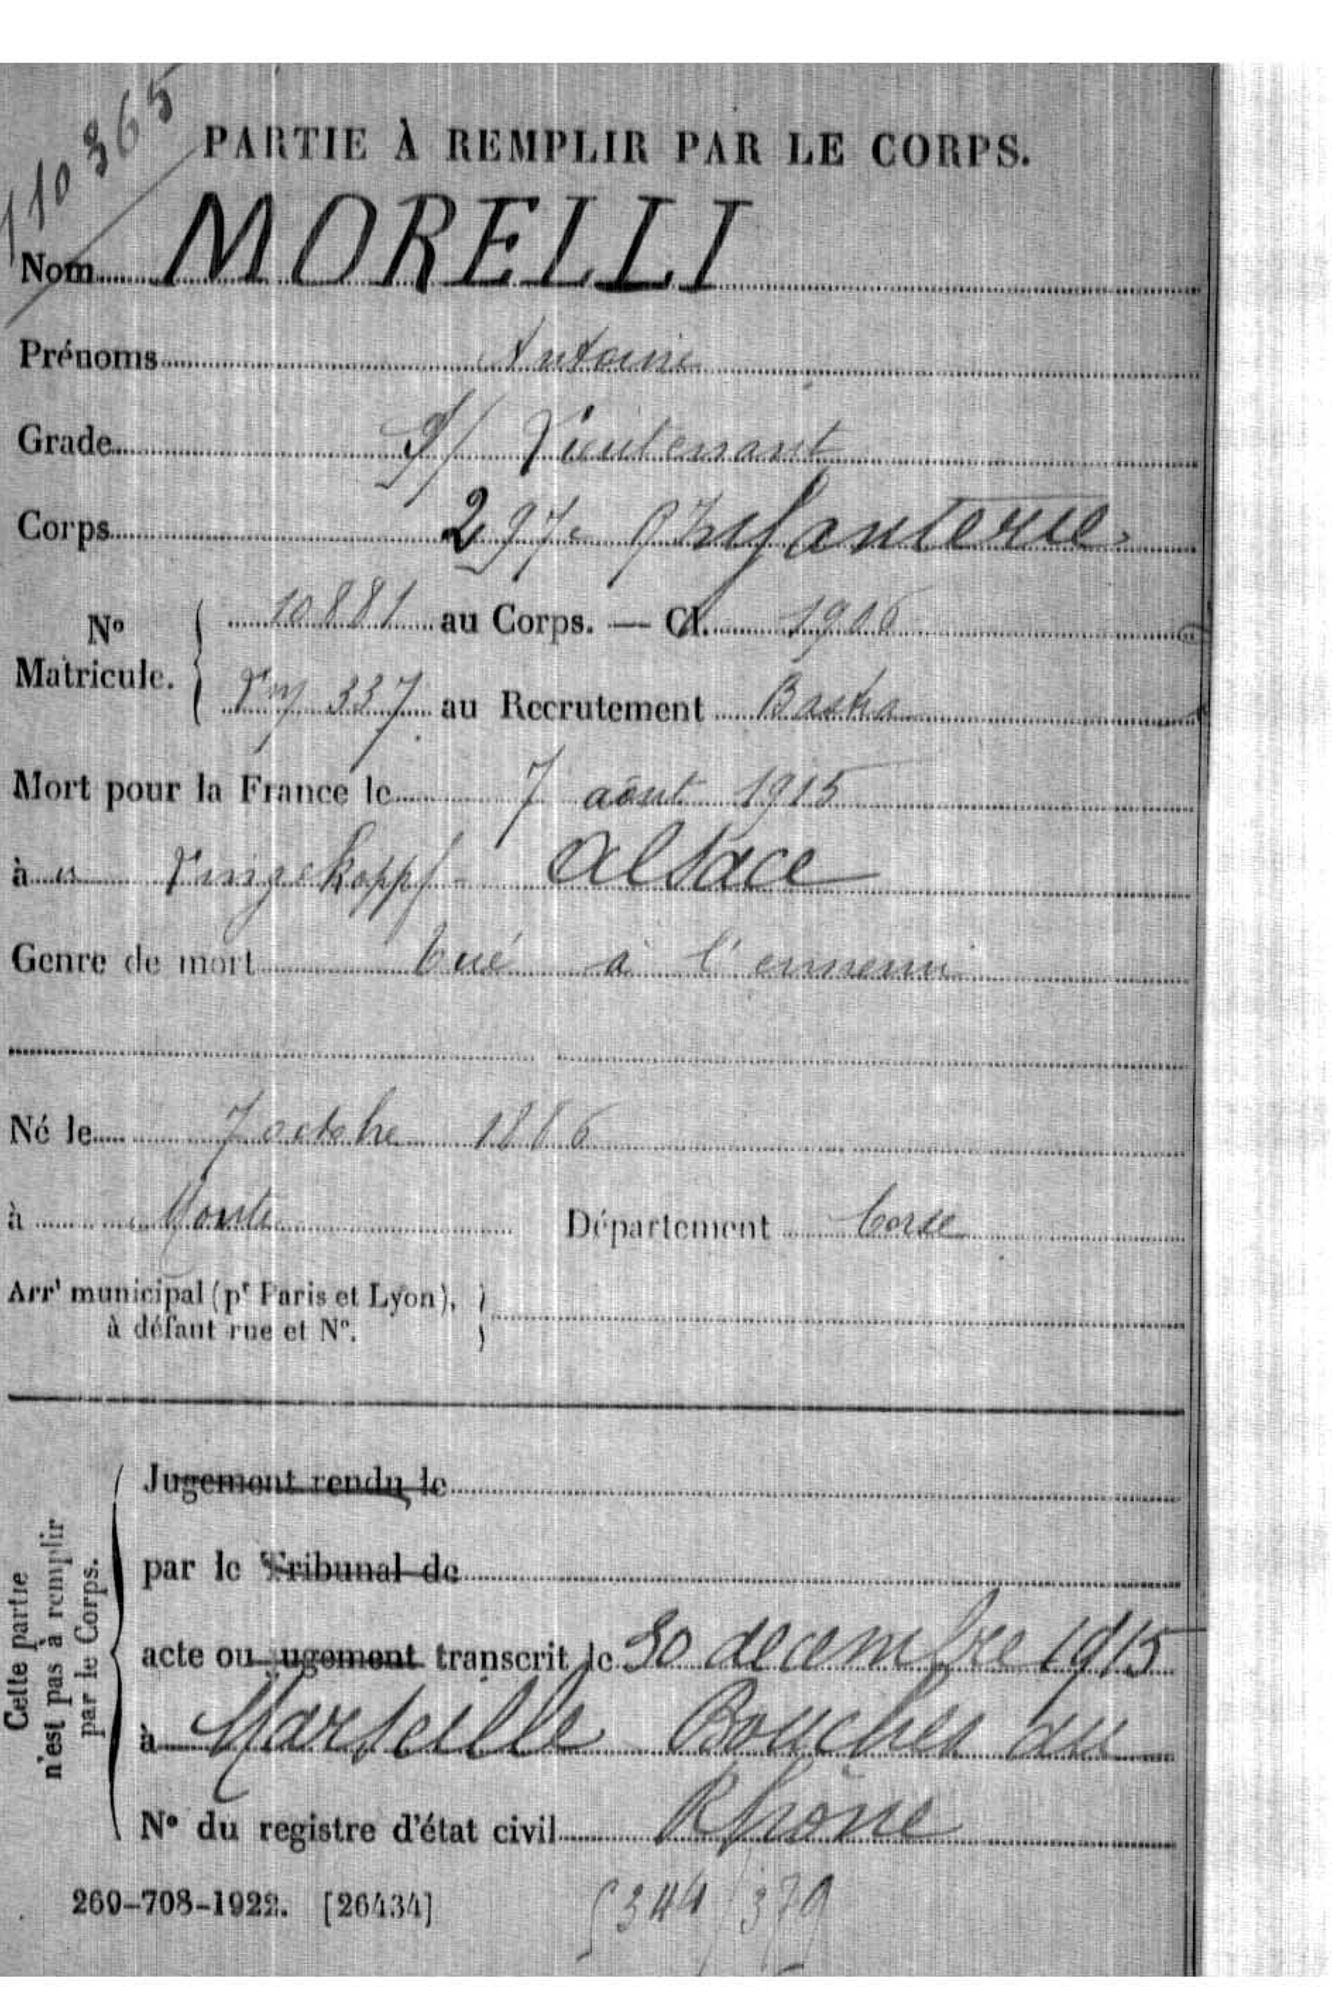 110365
PARTIE À REMPLIR PAR LE CORPS.
Nom MORELLI
Prénoms Antoine
Grade S/ Lieutenant
Corps 297e d'Infanterie
No Matricule. 10881 au Corps. — Cl. 1906
337 au Recrutement Bastia
Mort pour la France le 7 août 1915
à au Lingekopf - Alsace
Genre de mort tué à l'ennemi
Né le 7 octobre 1886
à Monte Département Corse
Arrt municipal (pr Paris et Lyon),
à défaut rue et No.
Cette partie
n'est pas à remplir
par le Corps.
Jugement rendu le
par le Tribunal de
acte ou jugement transcrit le 30 decembre 1915
à Marseille Bouches du
No du registre d'état civil Rhône
269-708-1922. [26434]
344/379